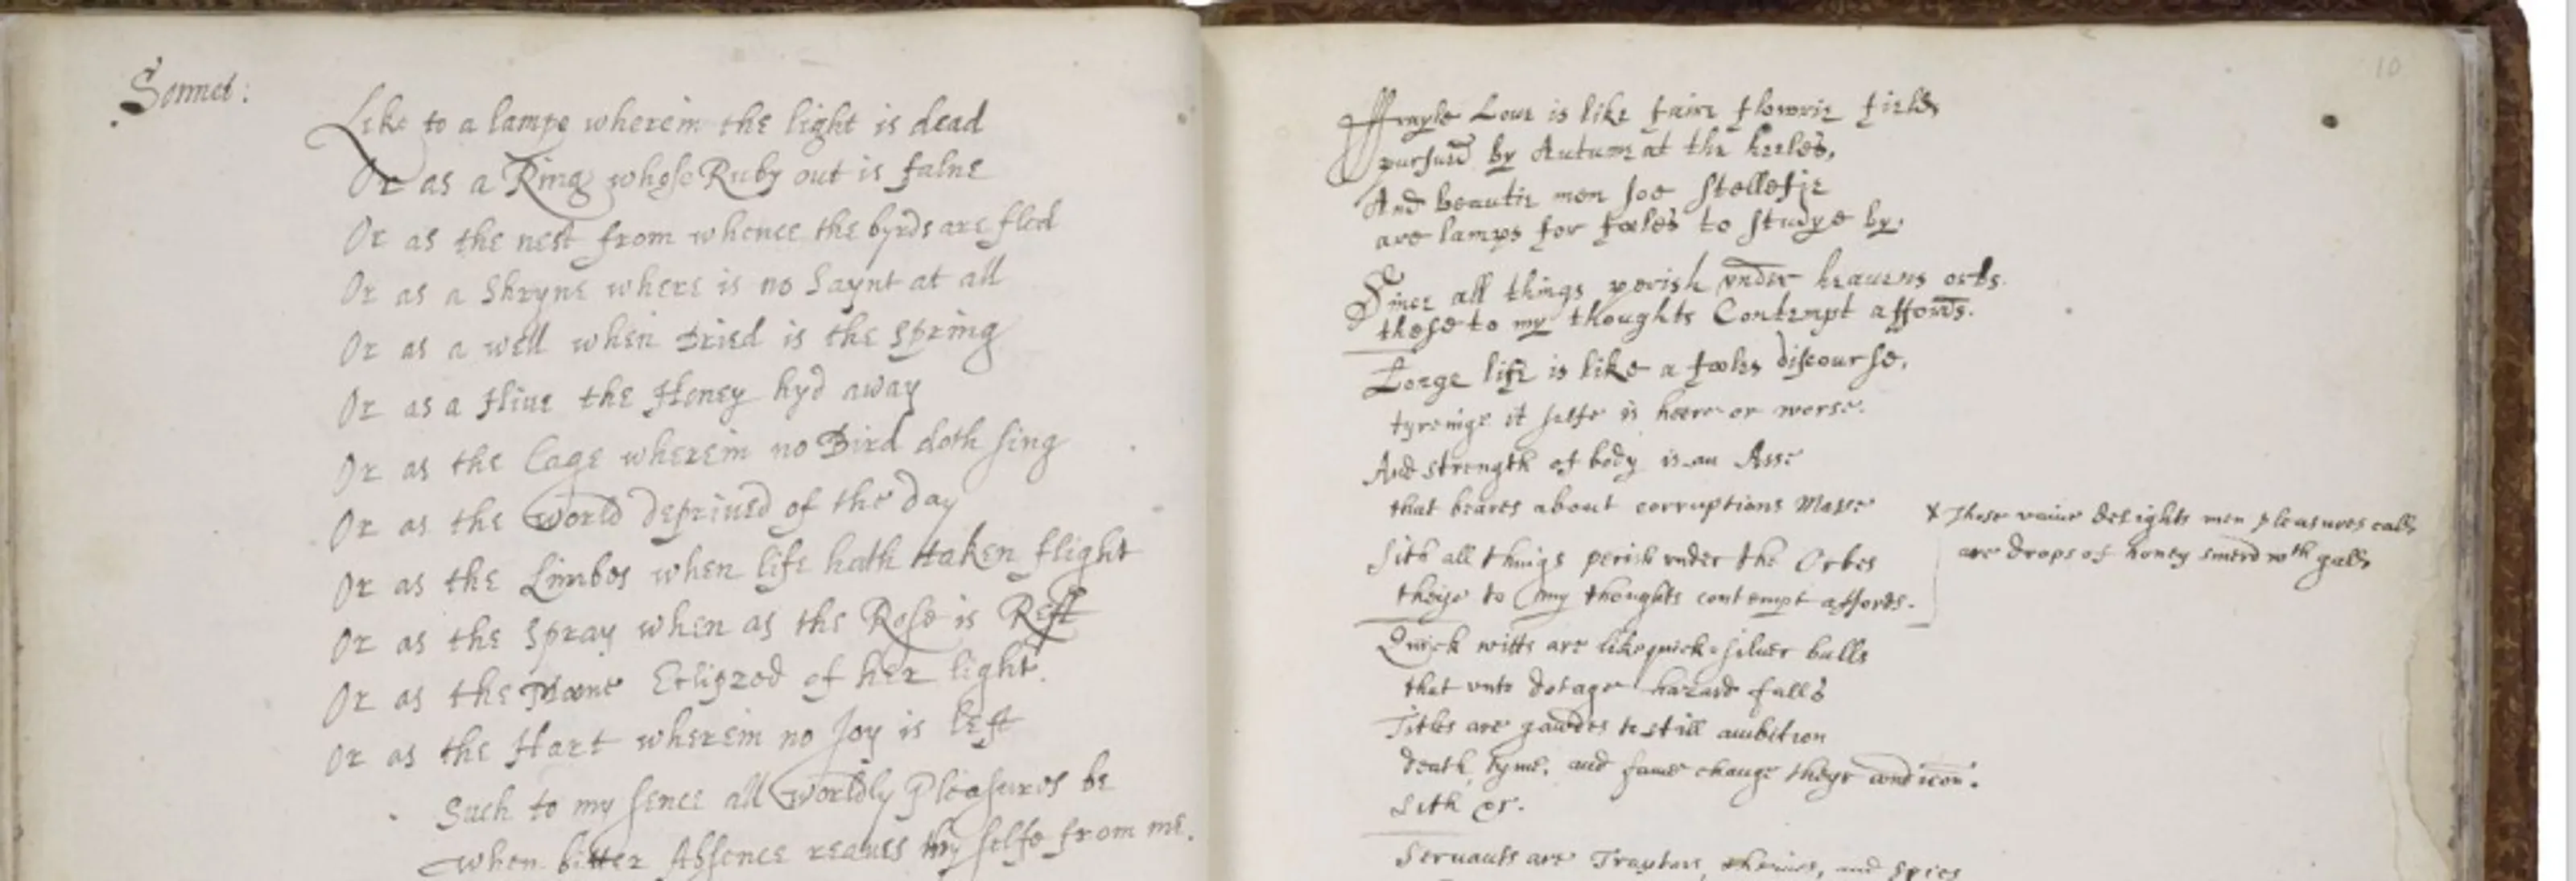 Sonnet:
Like to a lampe wherein the light is dead
Or as a Ring whose Ruby out is falne
Or as the nest from whence the byrds are fled
Or as a Shryne where is no Saynt at all
Or as a well when dried is the spring
Or as a Hiue the Honey hyd away
Or as the Cage wherein no Bird doth sing
Or as the World depriued of the day
Or as the Limbes when life hath taken flight
Or as the spray when as the Rose is Reft
Or as the Moone Eclipzed of her light.
Or as the Hart wherein no Joy is left
Such to my sence all worldly Pleasures be
when bitter Absence reaues thy selfe from me.
10
Frayle Loue is like faire flowrie fields
pursued by Autum at the heeles,
And beautie men soe
are lamps for fooles to studye by.
Since all things perish vnder heauens orbs.
these to my thoughts Contempt affords.
Longe life is like a fooles discourse,
it selfe is heere or worse.
And strength of body is an Asse
that beares about corruptions Masse
Sith all things perish vnder the Orbes
theise to my thoughts contempt affords.
x These vaine delights men pleasures call
are drops of honey smerd wth gall
Quick witts are like quick-siluer balls
that vnto dotage hazard falls
Titles are gawdes to still ambition
death, tyme, and fame change theyr condicon.
Sith &c.
Seruants are Traytors, theiues, and spies